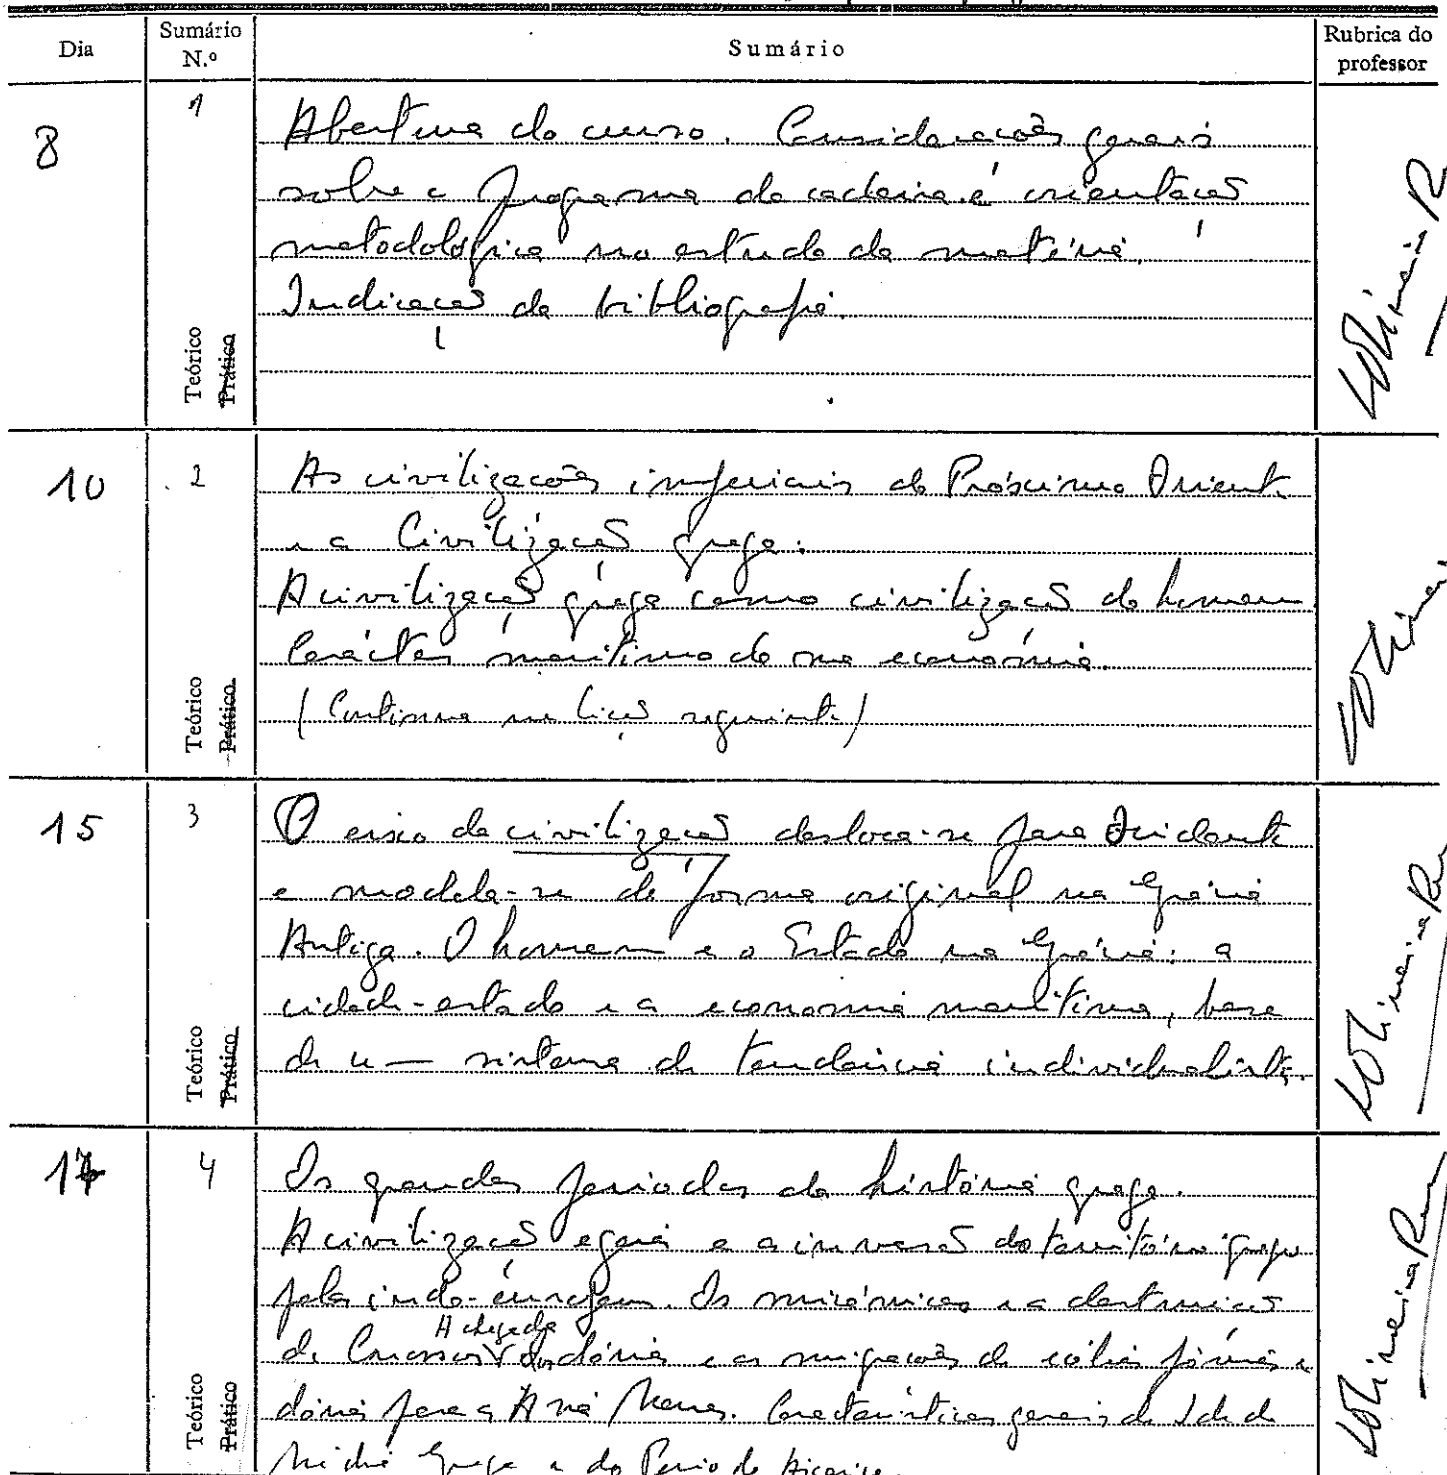 Dia
Sumário
N.º
Sumário
Rubrica do
professor
8
1
Abertura do curso. Considerações gerais
sobre o programa da cadeira e orientação
metodológica no estudo da matéria.
Indicação da bibliografia.
Teórico
Prático
10
2
As civilizações imperiais do Próximo Oriente
e a Civilização grega.
A civilização grega como civilização do homem
Carácter marítimo da sua economia.
(Continua na lição seguinte)
Teórico
Prático
15
3
O eixo da civilização desloca-se para Ocidente
e modela-se de forma original na Grécia
Antiga. O homem e o Estado na Grécia: a
cidade-estado e a economia marítima, base
de um sistema de tendência individualista.
Teórico
Prático
17
4
Os grandes períodos da história grega.
A civilização egeia e a invasão do território grego
pelos indo-europeus. Os micénicos e a destruição
A chegada
de Cnossos dos dórios e as migrações de eólios jónios e
dórios para a Ásia Menor. Características gerais da Idade
Média Grega e do Período Arcaico.
Teórico
Prático